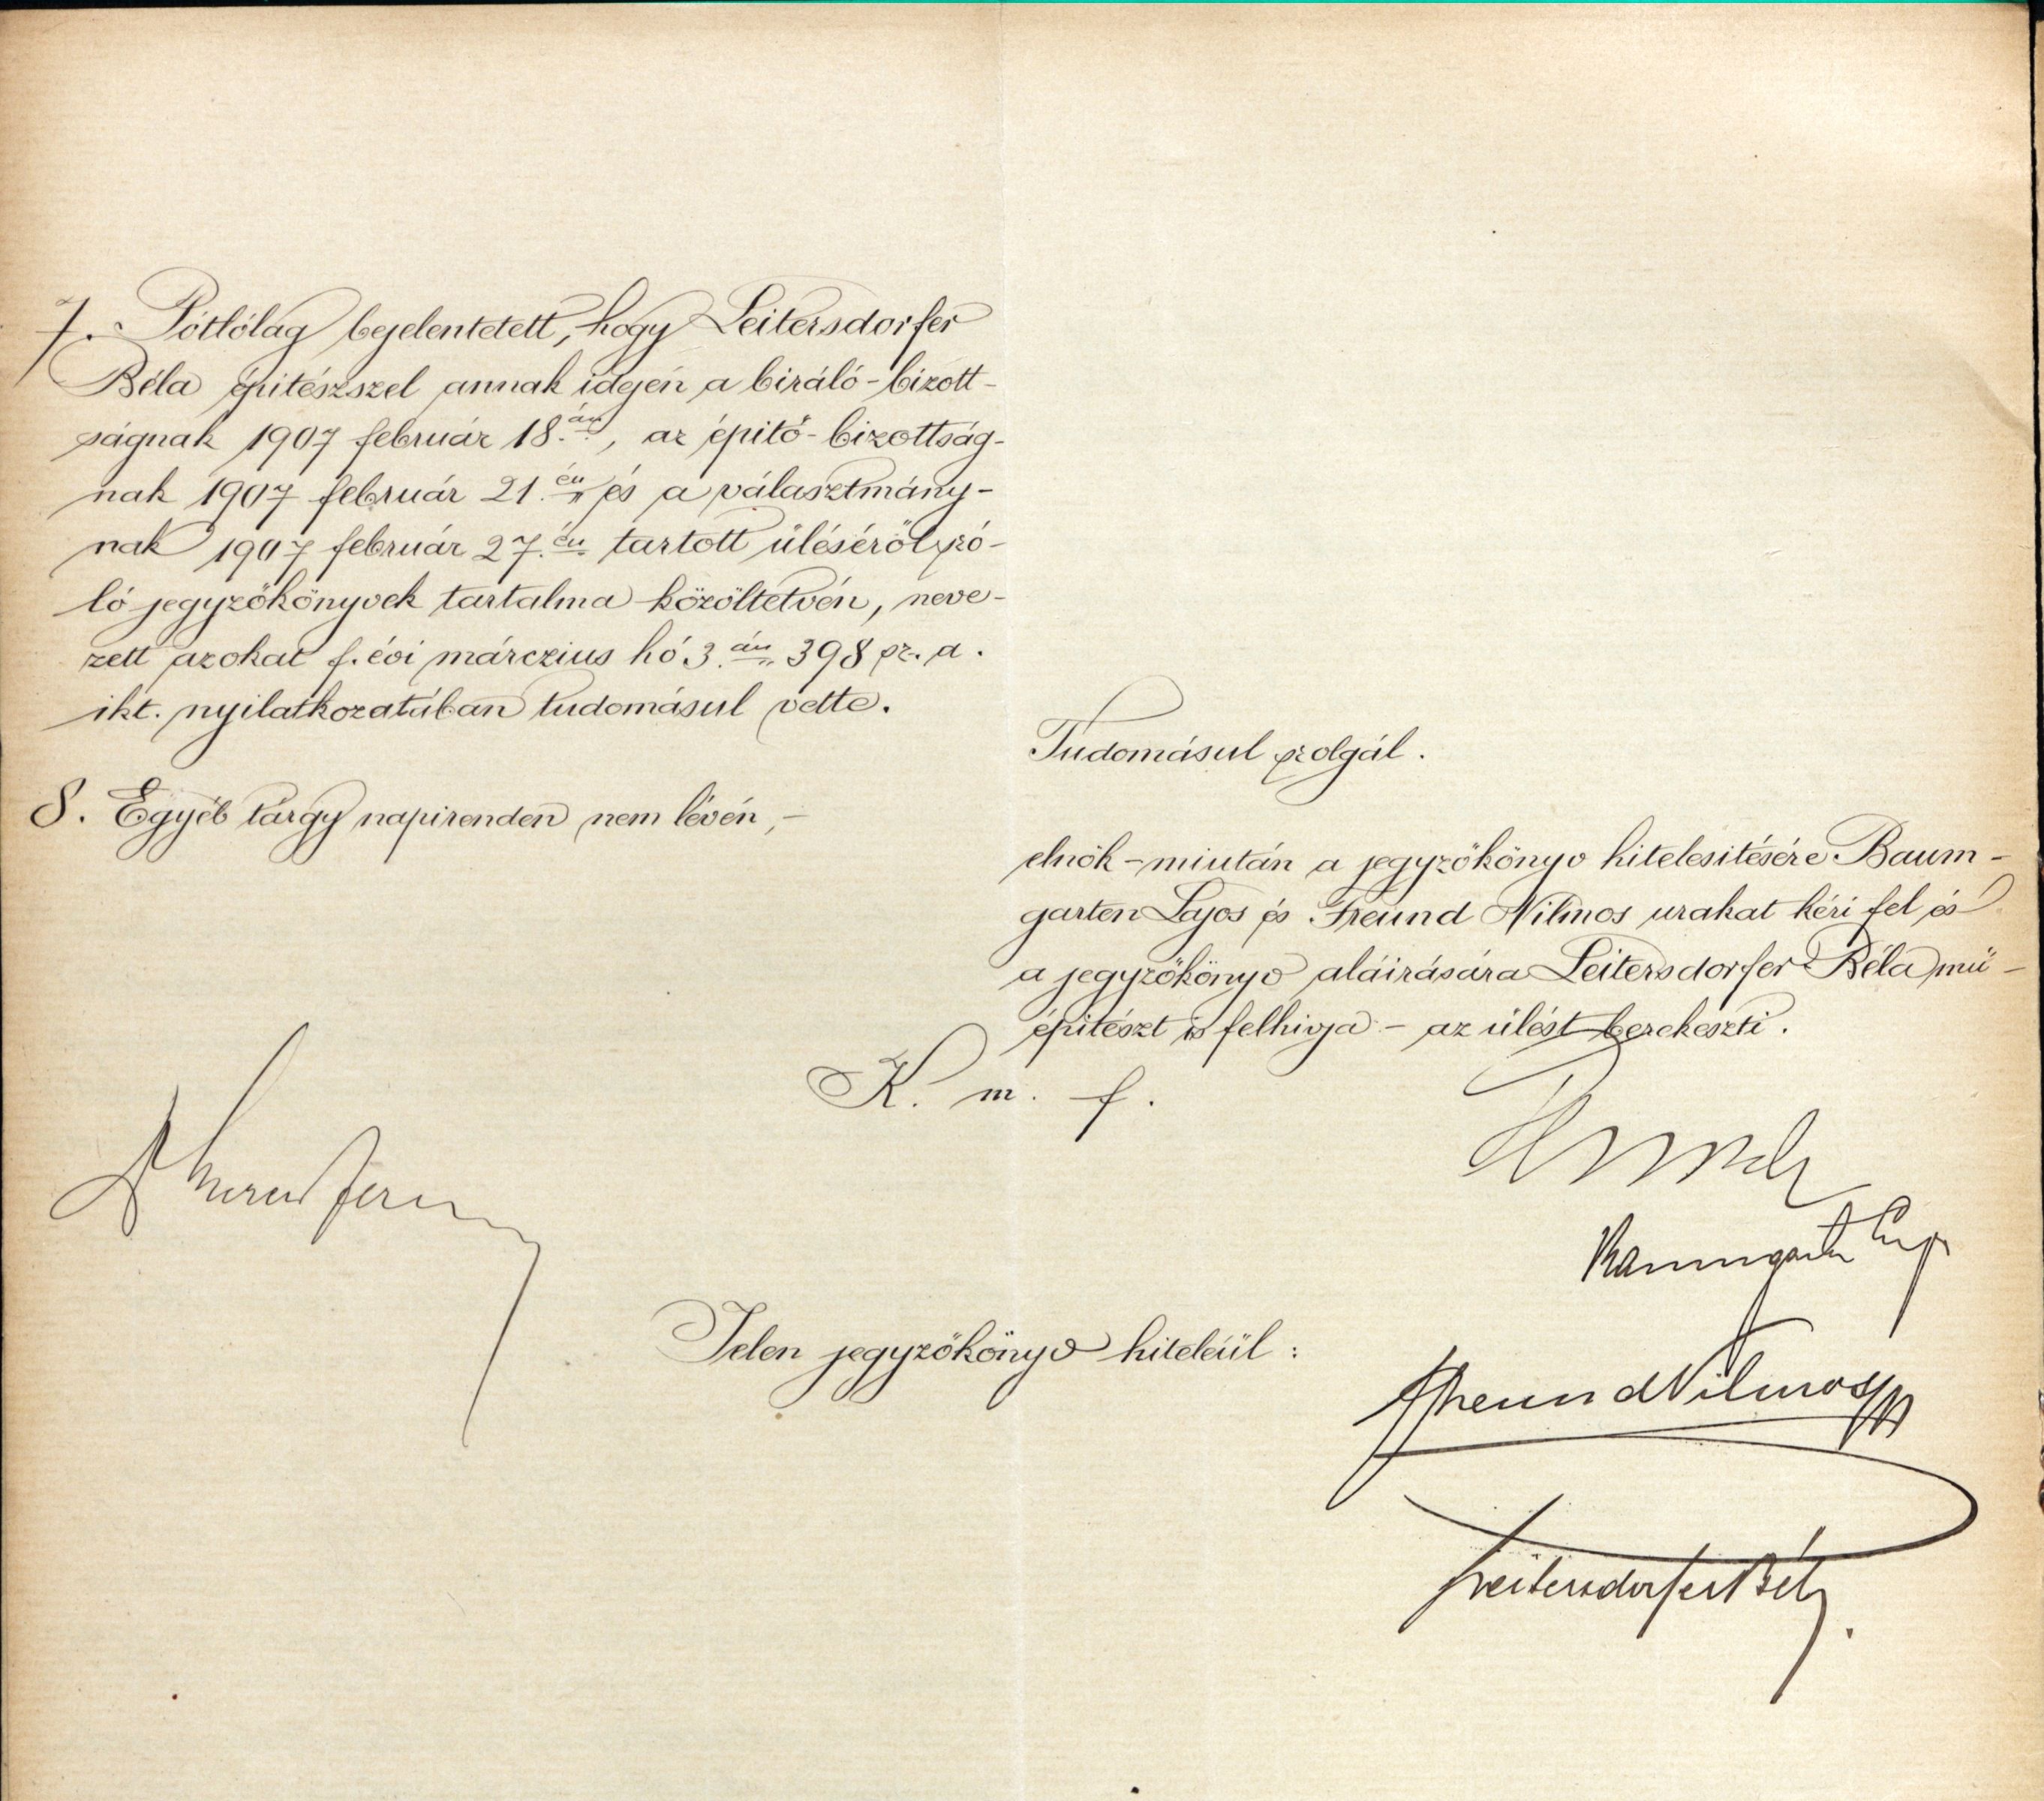 7. Pótlólag bejelentetett, hogy Leitersdorfer
Béla épitészszel annak idején a biráló-bizott-
ságnak 1907 február 18.án, az épitő-bizottság-
nak 1907 február 21.én és a választmány-
nak 1907 február 27.én tartott üléséről szó-
ló jegyzőkönyvek tartalma közöltetvén, neve-
zett azokat f. évi márczius hó 3.án 398 sz. a.
ikt. nyilatkozatában tudomásul vette.
Tudomásul szolgál.
8. Egyéb tárgy napirenden nem lévén,-
elnök - miután a jegyzőkönyv hitelesitésére Baum-
garten Lajos és Freund Vilmos urakat kéri fel és
a jegyzőkönyv aláirására Leitersdorfer Béla mü-
épitészt is felhivja - az ülést berekeszti.
K. m. f.
Baumgarten Lajos
Jelen jegyzőkönyv hiteléül:
Freund Vilmos
Leitersdorfer Béla